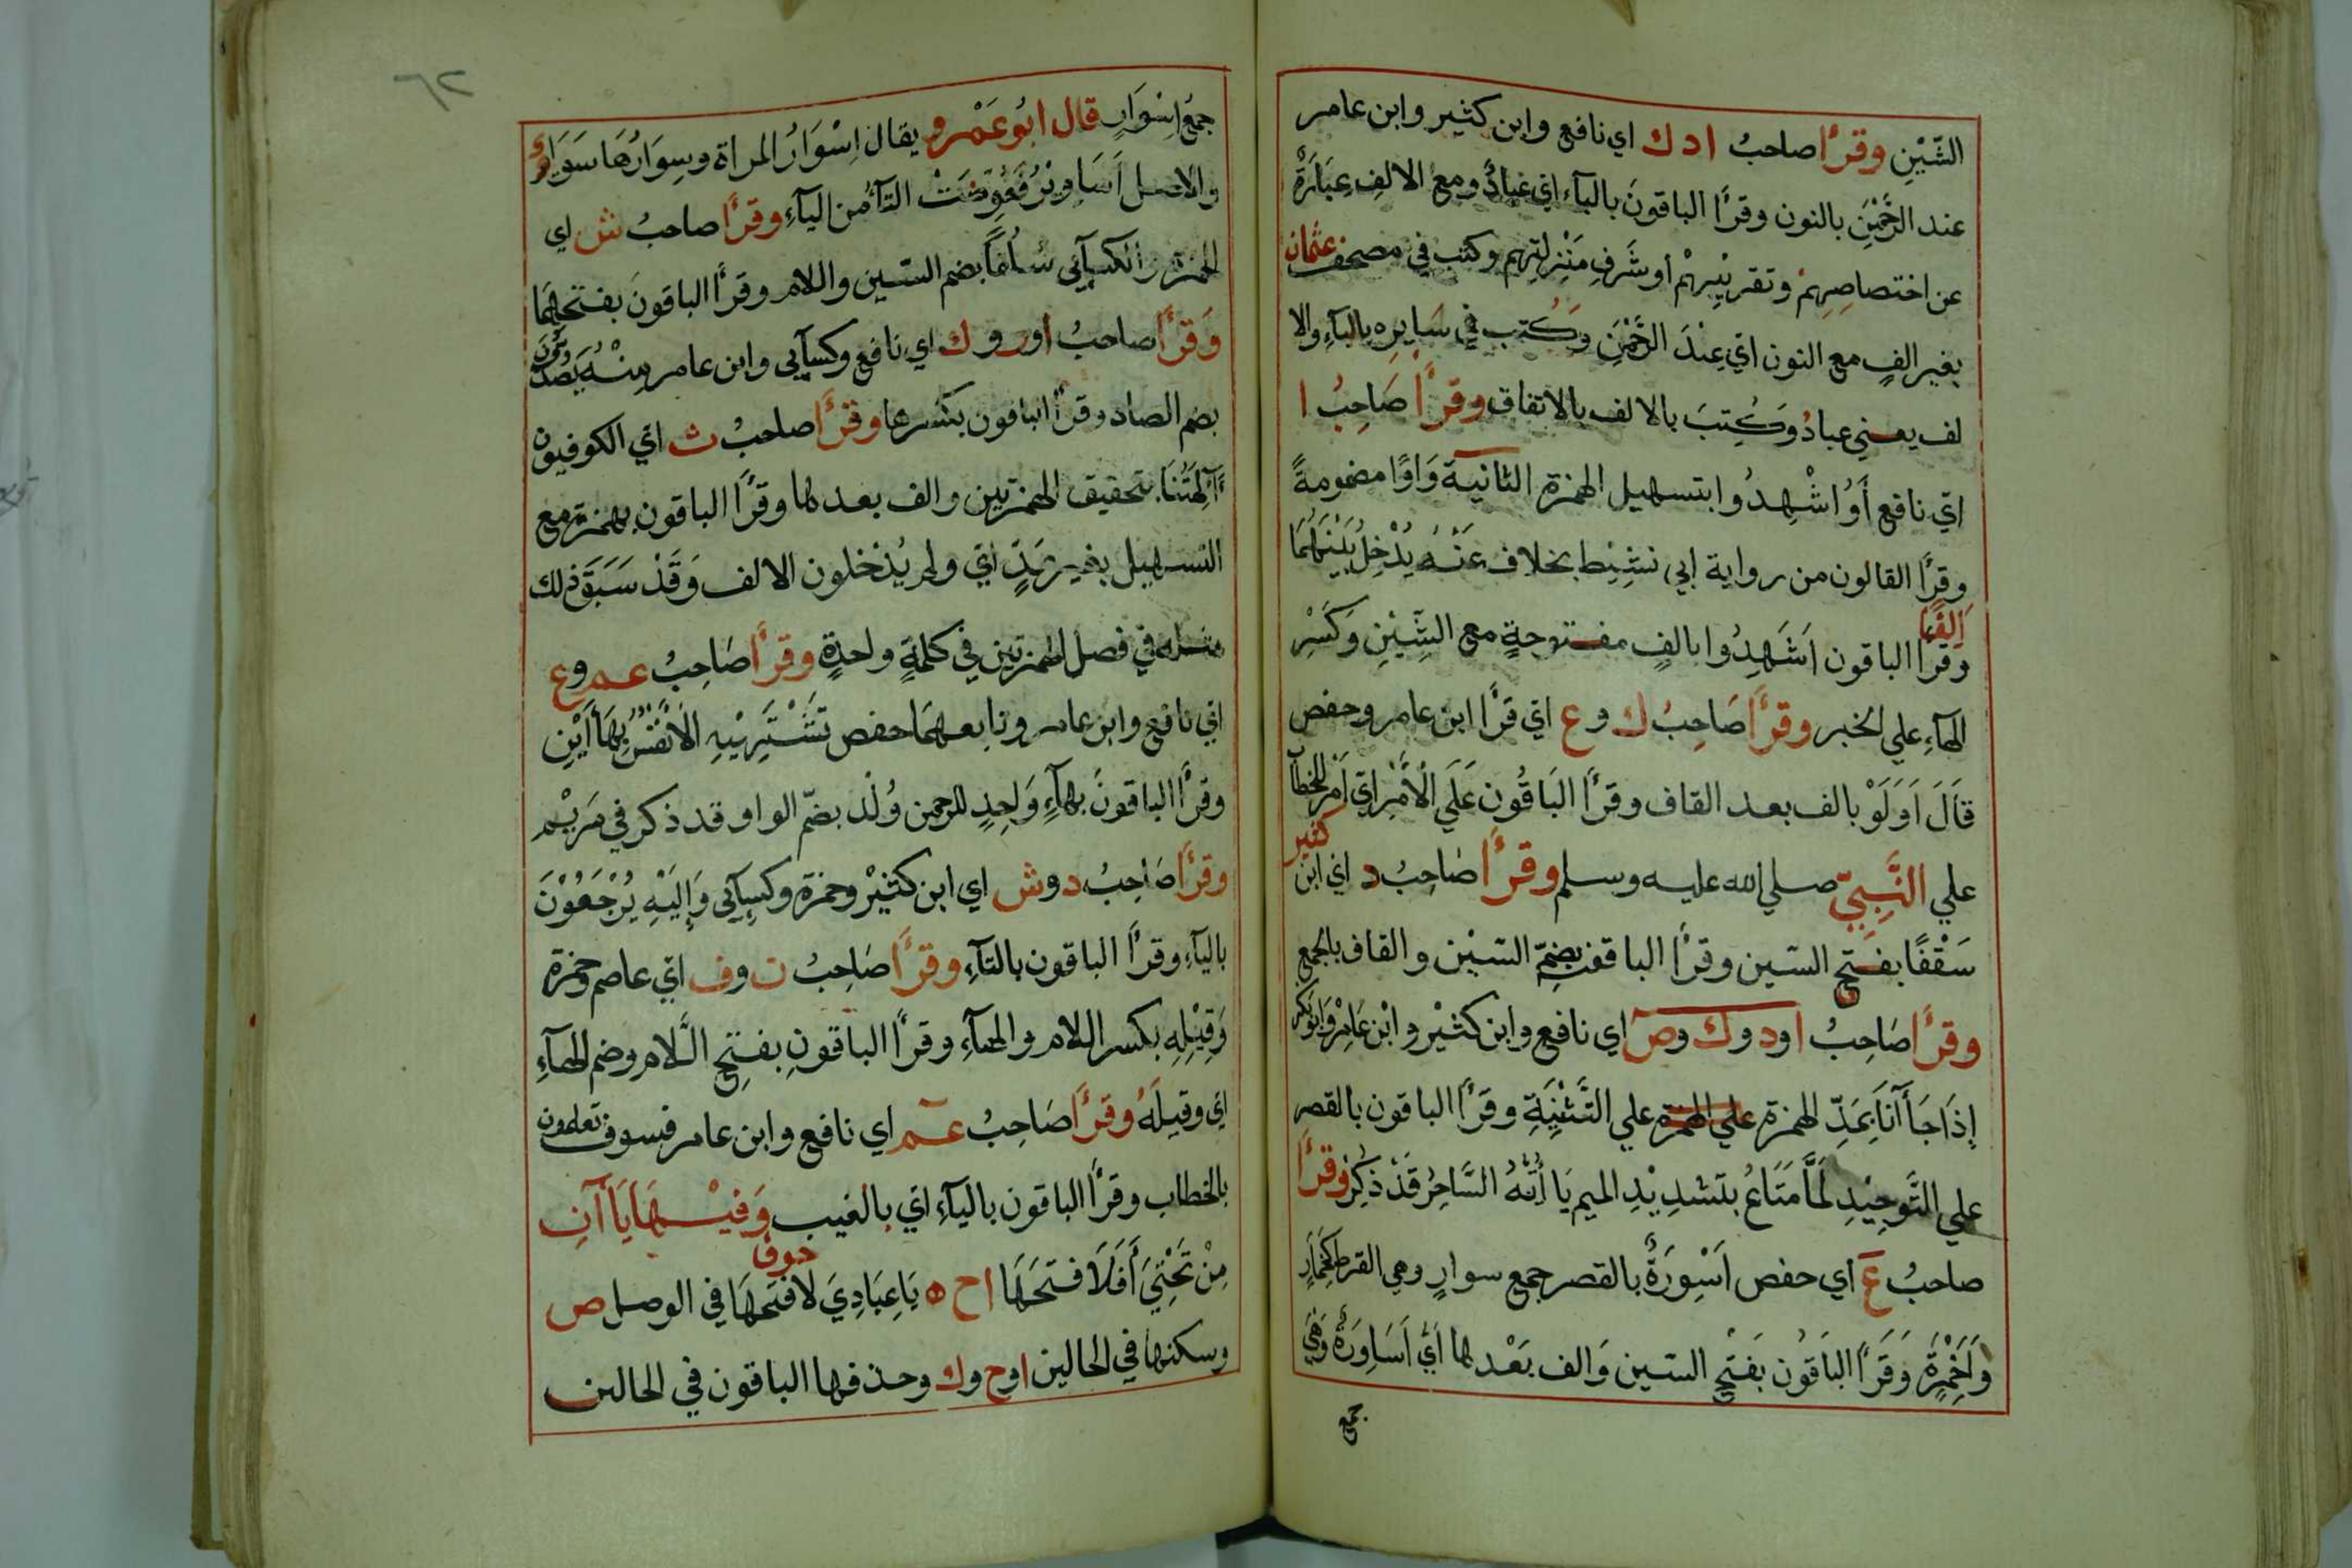 الشّيْنِ وقرأ صاحبُ ا د ك اي نافع وابن كثير وابن عامر
عند الرَّحْمٰنِ بالنون وقرأ الباقونَ بالبآء اي عبادُ ومع الالفِ عِبَارَةٌ
عن اختصاصِهِمْ وتقريْبِهِمْ او شَرفِ مَنْزلتِهم وكتب في مصحف عثمان
بغير الفٍ مع النون اي عِنْدَ الرَّحْمٰنِ وَكُتب في سَايرِه بالبآءِ والا
لف يعني عبادُ وَكُتِبَ بالالف بالاتفاق وقرأ صَاحِبُ ا
اي نافع أَوُ اشْهِدُوا بتسهيل الهمزة الثانية وَاوًا مضمومةً
وقرأ القالون من رواية ابي نشِيْط بخلاف عَنْهُ يُدْخِلُ بَيْنَهُمَا
اَلِفًا
وقرأ الباقون اَشَهِدُوا بالفٍ مفتوحةٍ مع الشِّيْنِ وَكَسْرِ
الهآءِ علي الخبر وقرأ صَاحِبُ ك و ع اي قرأ ابن عامر وحفص
قَالَ اَوَلَوْ بالف بعد القاف وقرأ البَاقُون عَلَي الْاَمْرِ اي اَمْر للخطآ
علي النَّبِيّ صلي الله عليه وسلم وقرأ صَاحِبُ د اي ابن كثير
سَقْفًا بفتح السّين وقرأ الباقون بضَمّ السّيْن والقاف بالجمع
وقرأ صَاحِبُ ا ود وك وص اي نافع وابن كثيْر وابْن عَامِرْ وَابُو بَكر
إذَا جَاأنَا بَمَدِّ الهمزة علي الهمزة علي التَّثْنِيَةِ وقرَأ الباقون بالقصر
علي التَّوحِيْدِ لَمَّا مَتَاعُ بتشدِيْدِ الميم يَا أَيُّهُ السَّاحِرُ قَدْ ذُكِرَ وقرأ
صاحبُ ع اي حفص اَسْوِرَةٌ بالقصر جمع سوارٍ وهي القرط كَخِمَارٍ
وَاَخْمِرَةٍ وَقَرَأ البَاقُون بفَتْحِ السّين وَالف بَعْدها اَيْ اَسَاوِرَةٌ وَهِيَ
جمع
٦٢
جمعُ اِسْوَارٍ قال ابُو عَمْرو يقال اِسْوَارُ المرأة وسِوَارُهَا سَوَاءٌ
والاصل اَسَاوِيْرُ فَعُوِّضَتْ التآءُ من اليآءِ وقرأ صاحبُ ش اي
الحمزة والكسآئي سُلُفًا بضم السّين واللام وقرأ الباقونَ بفتحهمَا
وَقرأ صاحبُ ا ور وك اي نافع وكسآيي وابن عامر مِنْهُ يَصُدُّونَ
بضم الصاد وقرأ الباقون بكَسْرها وقرأ صاحبُ ث اي الكوفيون
ءَآلِهَتُنَا بتحقيق الهمزتين والف بعدها وقرأ الباقون بهمزة مع
التسهيل بغير مَدٍّ اي ولم يُدْخلون الالف وَقَدْ سَبَقَ ذلك
مثله في فصل الهمزتين في كلمةٍ واحدةٍ وقرأ صَاحِبُ عم وع
اي نافع وابن عامر وتابعهمَا حفص تَشْتَهِيْهِ الاَنْفُسُ بِهَاأَيْنِ
وقرأ الباقونَ بهآءٍ وَاحِدٍ للرحمن وُلْد بضمّ الواو قد ذكر في مَرْيم
وقرأ صَاحِبُ د وش اي ابن كثيْر وحمزة وكِسآئى وَإِلَيْهِ يُرْجَعُوْنَ
باليآءِ وقرأ الباقون بالتآءِ وقرأ صَاحِبُ ن وف اي عاصم وحمزة
وَقِيْلِهِ بكسر اللام والهآءِ وقرأ الباقونِ بفتحِ اللّام وضم الهآءِ
اي وقيلَهُ وقرأ صَاحِبُ عم اي نافع وابن عامر فسوف تعلمون
بالخطاب وقرأ الباقون باليآءِ اي بالغيب وَفيْهَا يَاآنِ
مِنْ تَحْتِيَ أَفَلَا فتحَهَا ا ح ه يَا عِبَادِيَ لَا خوف فتحَهَا في الوصل ص
وسكنها في الحالين ا وح وك وحذفها الباقون في الحالين